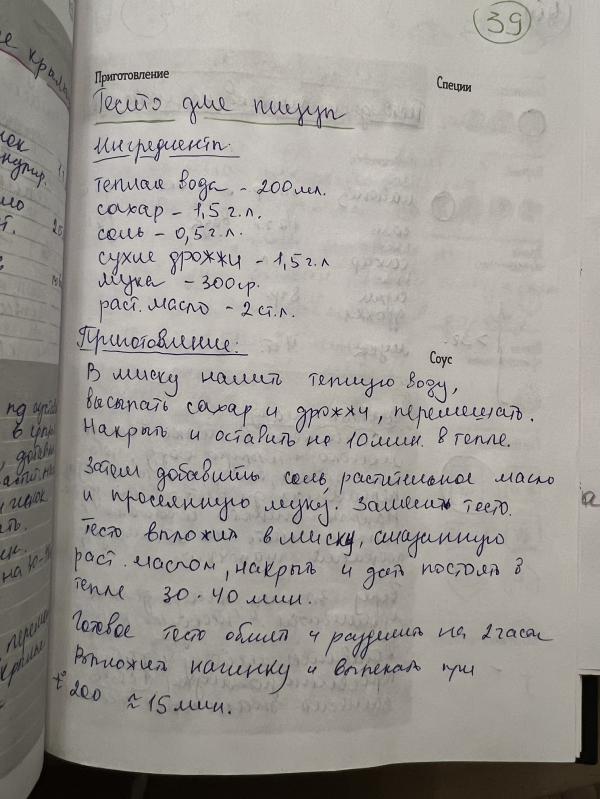 39
Приготовление
Специи
Тесто для пиццы
Ингредиенты:
теплая вода - 200 мл.
сахар - 1,5 г.л.
соль - 0,5 г.л.
сухие дрожжи - 1,5 г.л
мука - 300 гр.
раст. масло - 2 ст.л.
Приготовление:
Соус
В миску налить теплую воду,
высыпать сахар и дрожжи, перемешать.
Накрыть и оставить на 10 мин. в тепле.
Затем добавить соль, растительное масло
и просеянную муку. Замесить тесто.
Тесто выложить в миску, смазанную
раст. маслом, накрыть и дать постоять в
тепле 30-40 мин.
Готовое тесто обмять и разделить на 2 части
Выложить начинку и выпекать при
t° 200 ≈ 15 мин.